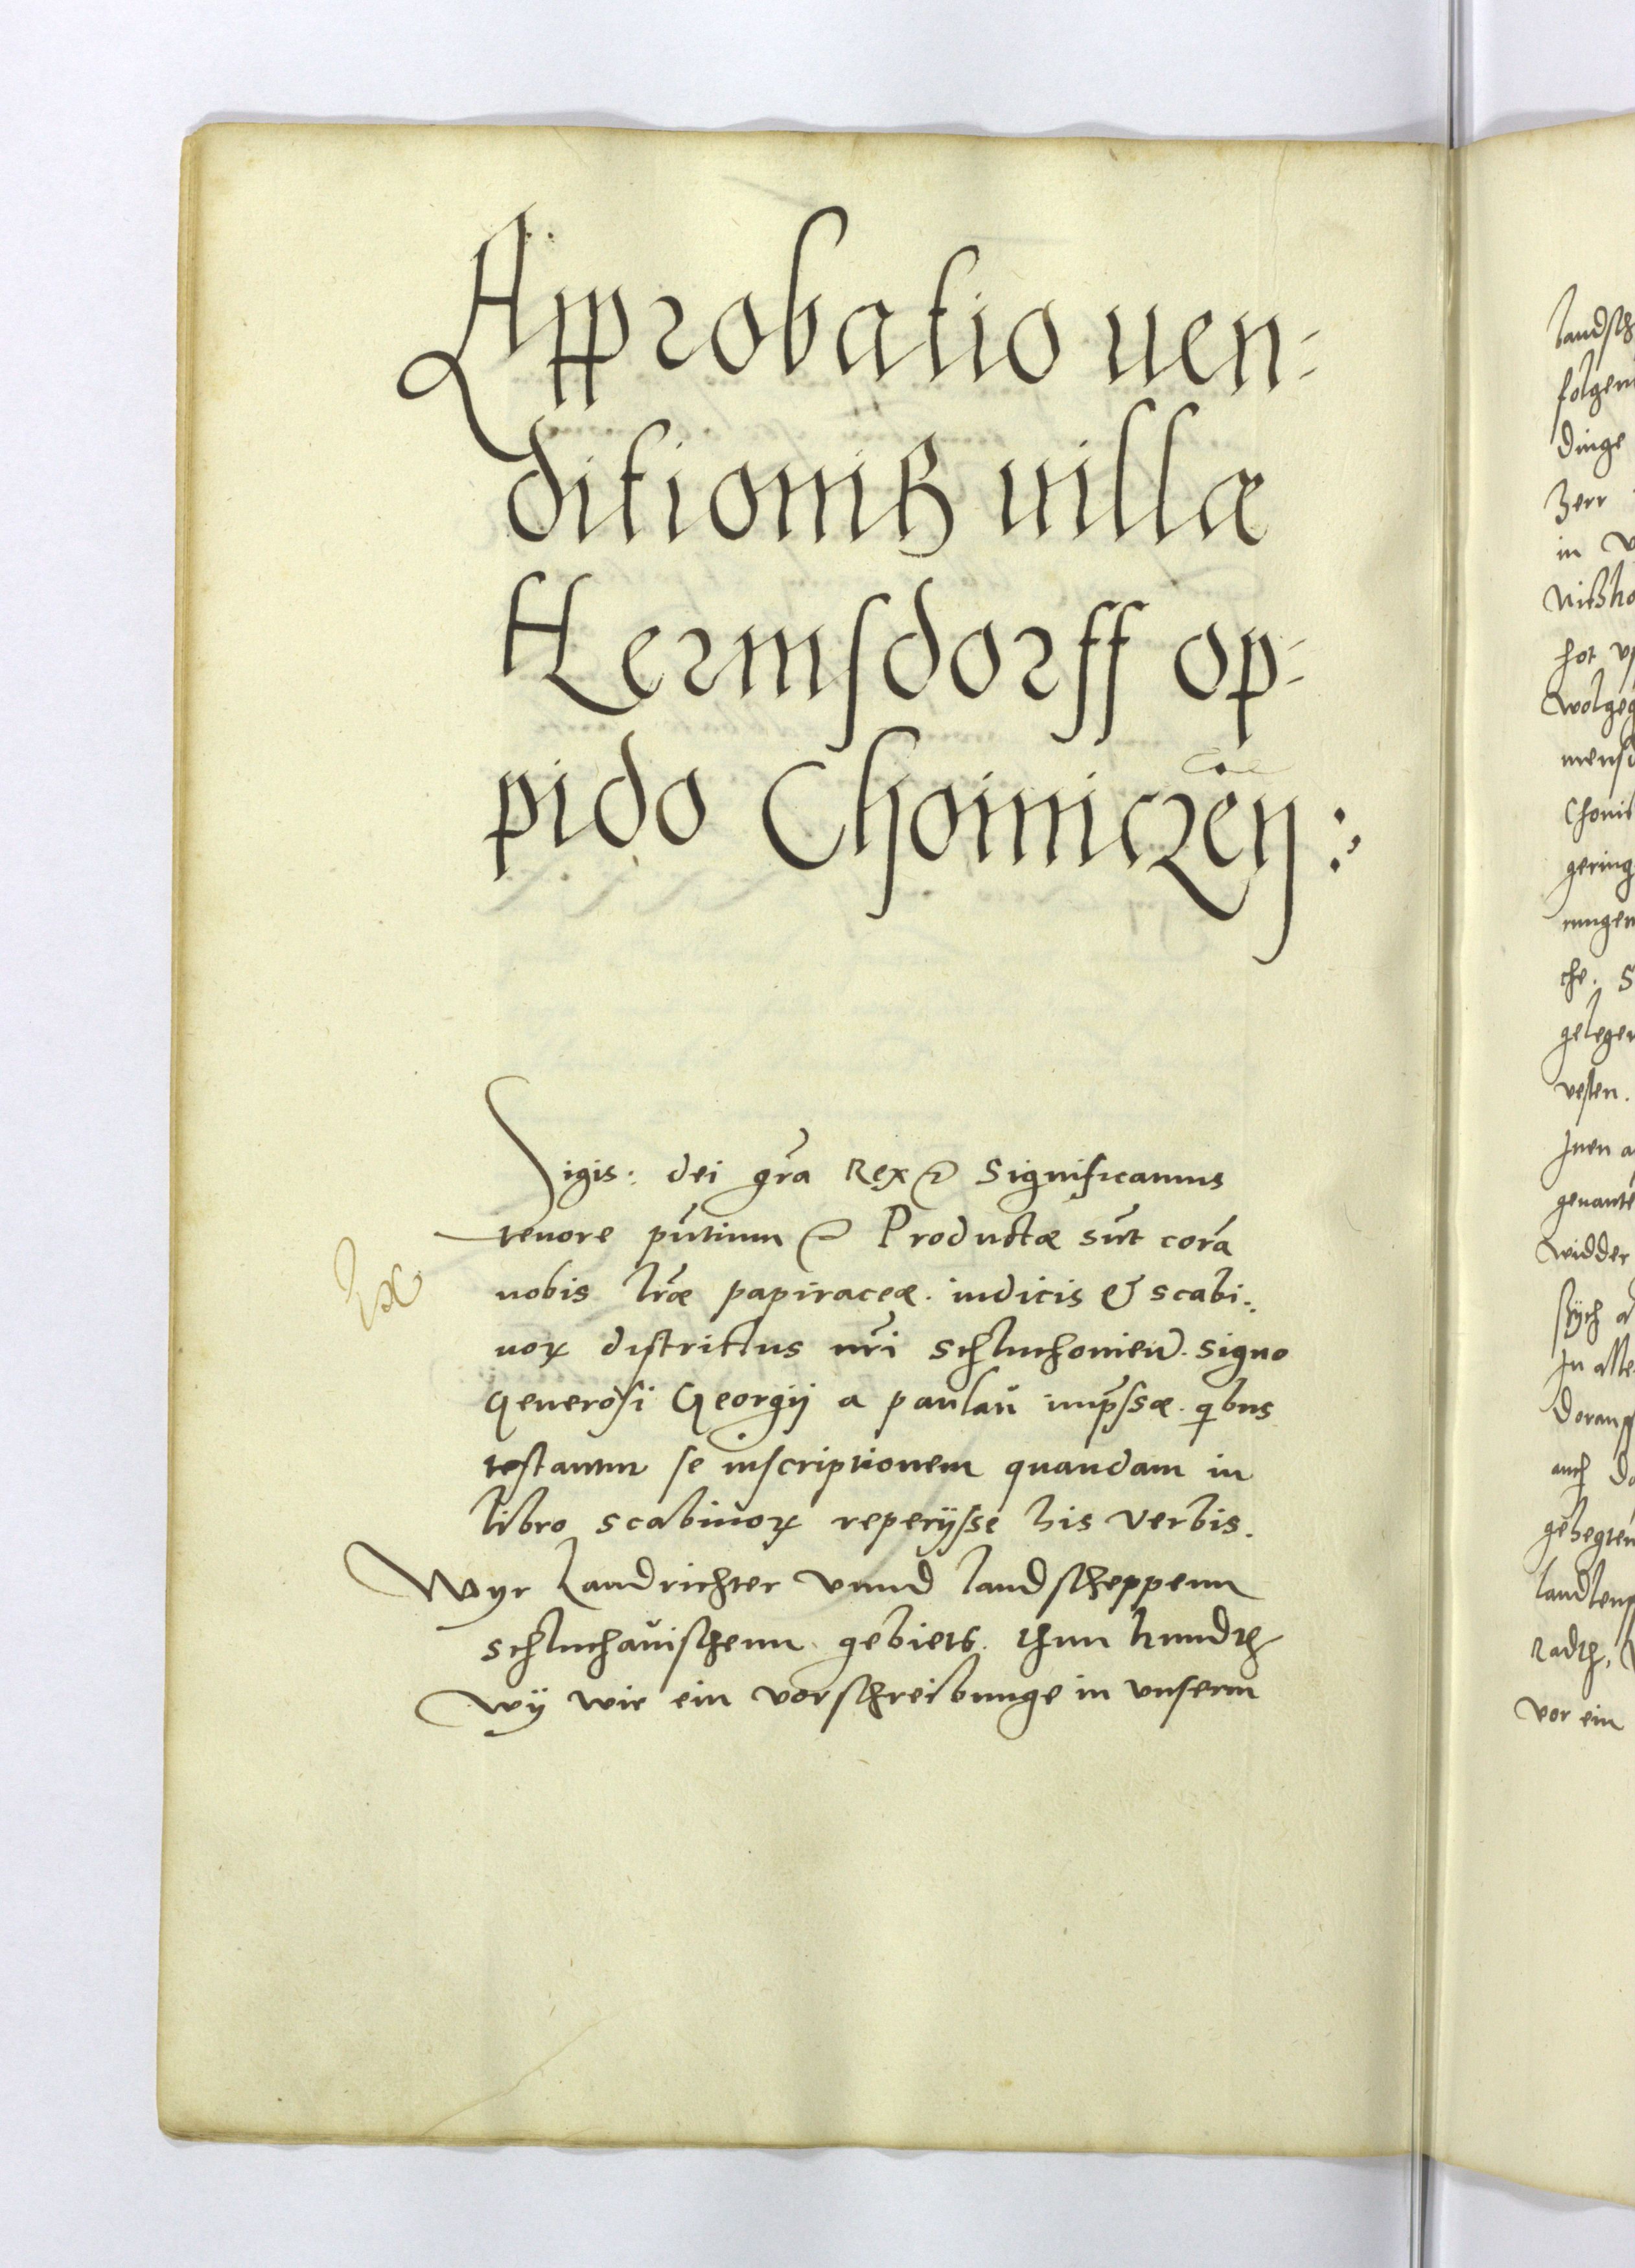 Approbatio uen-
ditioniß uillæ
Hermsdorff op-
pido Choiniczeñ:
Sigis: dei gr̃a Rex &c Significamus
tenore pñtium &c Productæ sũt corã
nobis lr̃æ papiraceæ. iudicis & scabi:
noꝝ districtus nr̃i schluchonieñ. signo
Generosi Georgij a paulaŭ imp̃ssæ. qbus
testantur se inscriptionem quandam in
libro scabinoꝝ reperijsse his verbis.
Wyr Landrichter vnnd landscheppenn
schluchaŭischenn. gebiets. thun kundth
Wÿ wir ein vorschreibunge in vnserm
landsch
folgen
dinge
herr
in
hot
wolgeg
gering
che.
geleger
vesten.
Inen a
genante
widder
In alle
auch da
gehegten
Radth,
vor ein